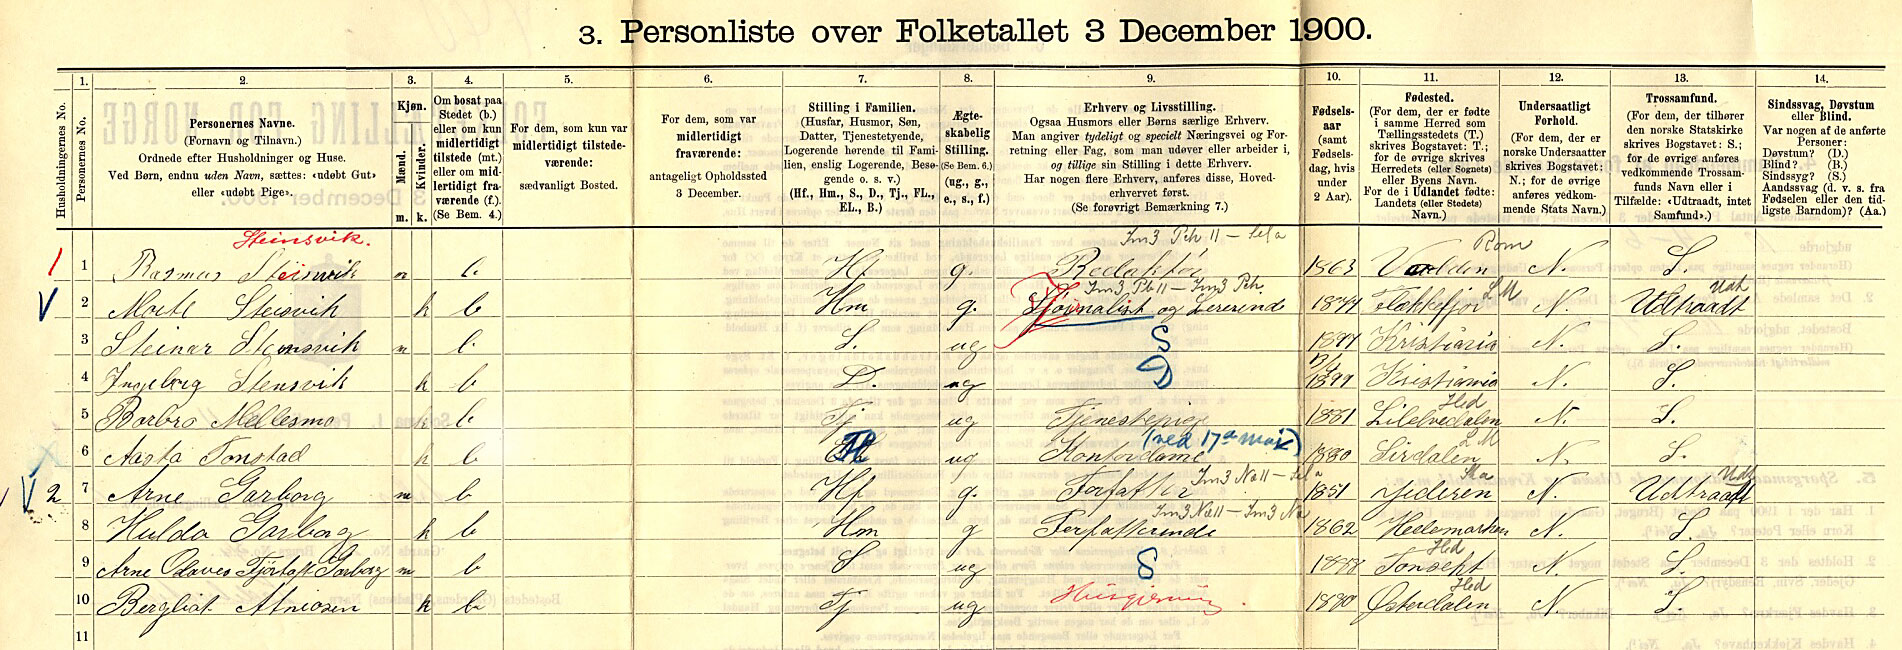 3. Personliste over Folketallet 3 December 1900.
1. 2. 3. 4. 5. 6. 7. 8. 9. 10. 11. 12. 13. 14.
Husholdningernes No.
Personernes No.
Personernes Navne.
(Fornavn og Tilnavn.)
Ordnede efter Husholdninger og Huse.
Ved Børn, endnu uden Navn, sættes: «udøbt Gut»
eller «udøbt Pige».
Kjøn.
Mænd.
Kvinder.
m. k.
Om bosat paa
Stedet (b.)
eller om kun
midlertidigt
tilstede (mt.)
eller om mid-
lertidigt fra-
værende (f.).
(Se Bem. 4.)
For dem, som kun var
midlertidigt tilstede-
værende:
sædvanligt Bosted.
For dem, som var
midlertidigt
fraværende:
antageligt Opholdssted
3 December.
Stilling i Familien.
(Husfar, Husmor, Søn,
Datter, Tjenestetyende,
Logerende hørende til Fami-
lien, enslig Logerende, Besø-
gende o. s. v.)
(Hf., Hm., S., D., Tj., FL.,
EL., B.)
Ægte-
skabelig
Stilling.
(Se Bem. 6.)
(ug., g.,
e., s., f.)
Erhverv og Livsstilling.
Ogsaa Husmors eller Børns særlige Erhverv.
Man angiver tydeligt og specielt Næringsvei og For-
retning eller Fag, som man udøver eller arbeider i,
og tillige sin Stilling i dette Erhverv.
Har nogen flere Erhverv, anføres disse, Hoved-
erhvervet først.
(Se forøvrigt Bemærkning 7.)
Fødsels-
aar
(samt
Fødsels-
dag, hvis
under
2 Aar).
Fødested.
(For dem, der er fødte
i samme Herred som
Tællingsstedets (T.)
skrives Bogstavet: T.;
for de øvrige skrives
Herredets (eller Sognets)
eller Byens Navn.
For de i Udlandet fødte:
Landets (eller Stedets)
Navn.)
Undersaatligt
Forhold.
(For dem, der er
norske Undersaatter
skrives Bogstavet:
N.; for de øvrige
anføres vedkom-
mende Stats Navn.)
Trossamfund.
(For dem, der tilhører
den norske Statskirke
skrives Bogstavet: S.;
for de øvrige anføres
vedkommende Tros-
samfunds Navn eller i
Tilfælde: «Udtraadt, intet
Samfund».)
Sindssvag, Døvstum
eller Blind.
Var nogen af de anførte
Personer:
Døvstum? (D.)
Blind? (B.)
Sindssyg? (S.)
Aandssvag (d. v. s. fra
Fødselen eller den tid-
ligste Barndom)? (Aa.)
Steinsvik. Rom
1 1 Rasmus Steinsvik m b Hf g. Redaktør 1863 Volden N. S.
2 Marta Steinsvik k b Hm g. Journalist og Lærerinde 1877 Flekkefjor N. Udtraadt
3 Steinar Steinsvik m b S. ug 1897 Kristiania N. S.
4 Ingeborg Steinsvik k b D. ug 1899 Kristiania N. S.
5 Barbro Mellesmo k b Tj ug Tjenestepige 1881 Lilelvedalen N. S.
6 Aasta Tonstad k b ug Kontordame (ved 17de mai) 1880 Sirdalen N. S.
2 7 Arne Garborg m b Hf g. Forfatter 1851 Jæderen N. Udtraadt
8 Hulda Garborg k b Hm g Forfatterinde 1862 Hedemarken N. S.
9 Arne Olaves Fjörtoft Garborg m b S ug 1888 Tonseht N. S.
10 Bergliot Atneosen k b Tj ug Husgjerning. 1880 Østerdalen N. S.
11